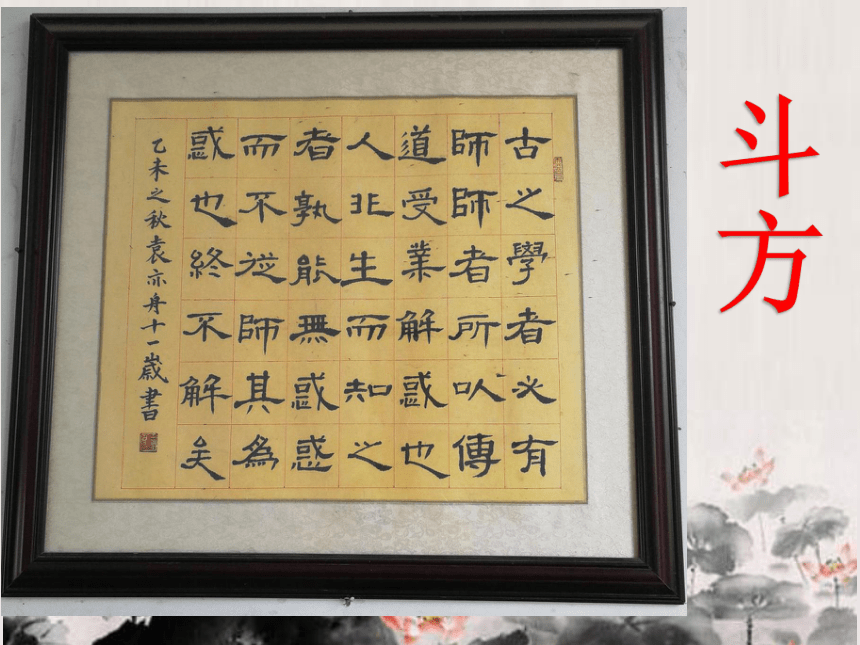 古之學者必有
師師者所以傳
道受業解惑也
人非生而知之
者孰能無惑惑
而不從師其為
惑也終不解矣
乙未之秋袁亦舟十一歲書
斗方